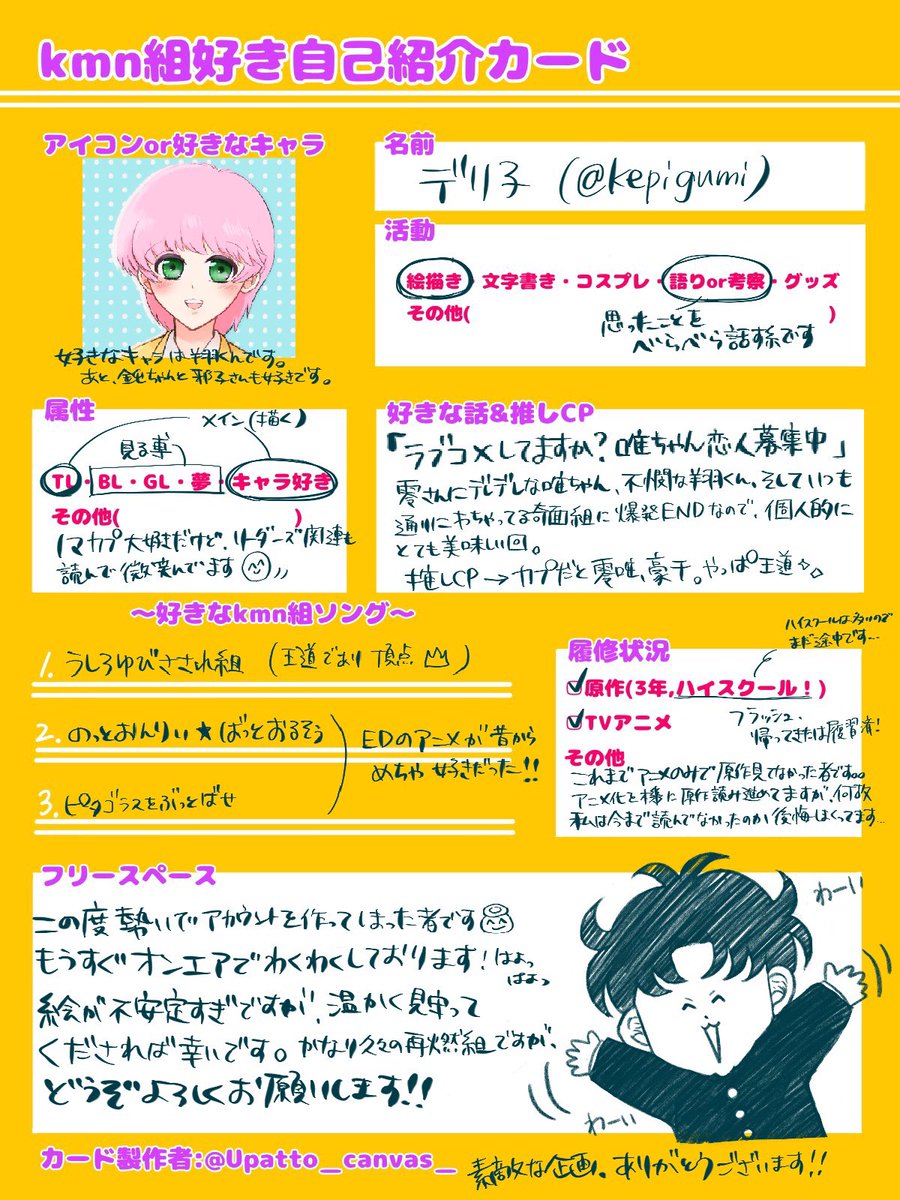 kmn組好き自己紹介カード
アイコンor好きなキャラ
好きなキャラは翔くんです。
あと、鈍ちゃんと邪子さんも好きです。
名前
デリ子 (@kepigumi)
活動
絵描き・文字書き・コスプレ・語りor考察・グッズ
その他( )
思ったことを
べらべら話す系です
属性
メイン(描く)
見る専
TL・BL・GL・夢・キャラ好き
その他( )
ノマカプ大好きだけど、リーダーズ関連も
読んで微笑んでます
好きな話&推しCP
「ラブコメしてますか?唯ちゃん恋人募集中」
零さんにデレデレな唯ちゃん、不憫な翔くん、そしていつも
通りにわちゃってる奇面組に爆発ENDなので、個人的に
とても美味しい回。
推しCP→カプだと零唯、豪千。やっぱ王道
〜好きなkmn組ソング〜
1. うしろゆびさされ組 (王道であり頂点 )
2. のっとおんりぃ★ばっとおるそう
3. ピタゴラスをぶっとばせ
EDのアニメが昔から
めちゃ好きだった!!
履修状況
ハイスクールは多いので
まだ途中です…
原作(3年,ハイスクール!)
TVアニメ
フラッシュ、
帰ってきたは履習済!
その他
これまでアニメのみで原作見てなかった者です。。
アニメ化を機に原作読み進めてますが、何故
私は今まで読んでなかったのか後悔しまくってます…
フリースペース
この度勢いでアカウントを作ってしまった者です
もうすぐオンエアでわくわくしております!はよっ
はよっ
絵が不安定すぎですが、温かく見守って
くだされば幸いです。かなり久々の再燃組ですが、
どうぞよろしくお願いします!!
わーい
わーい
カード製作者:@Upatto_canvas_
素敵な企画、ありがとうございます!!